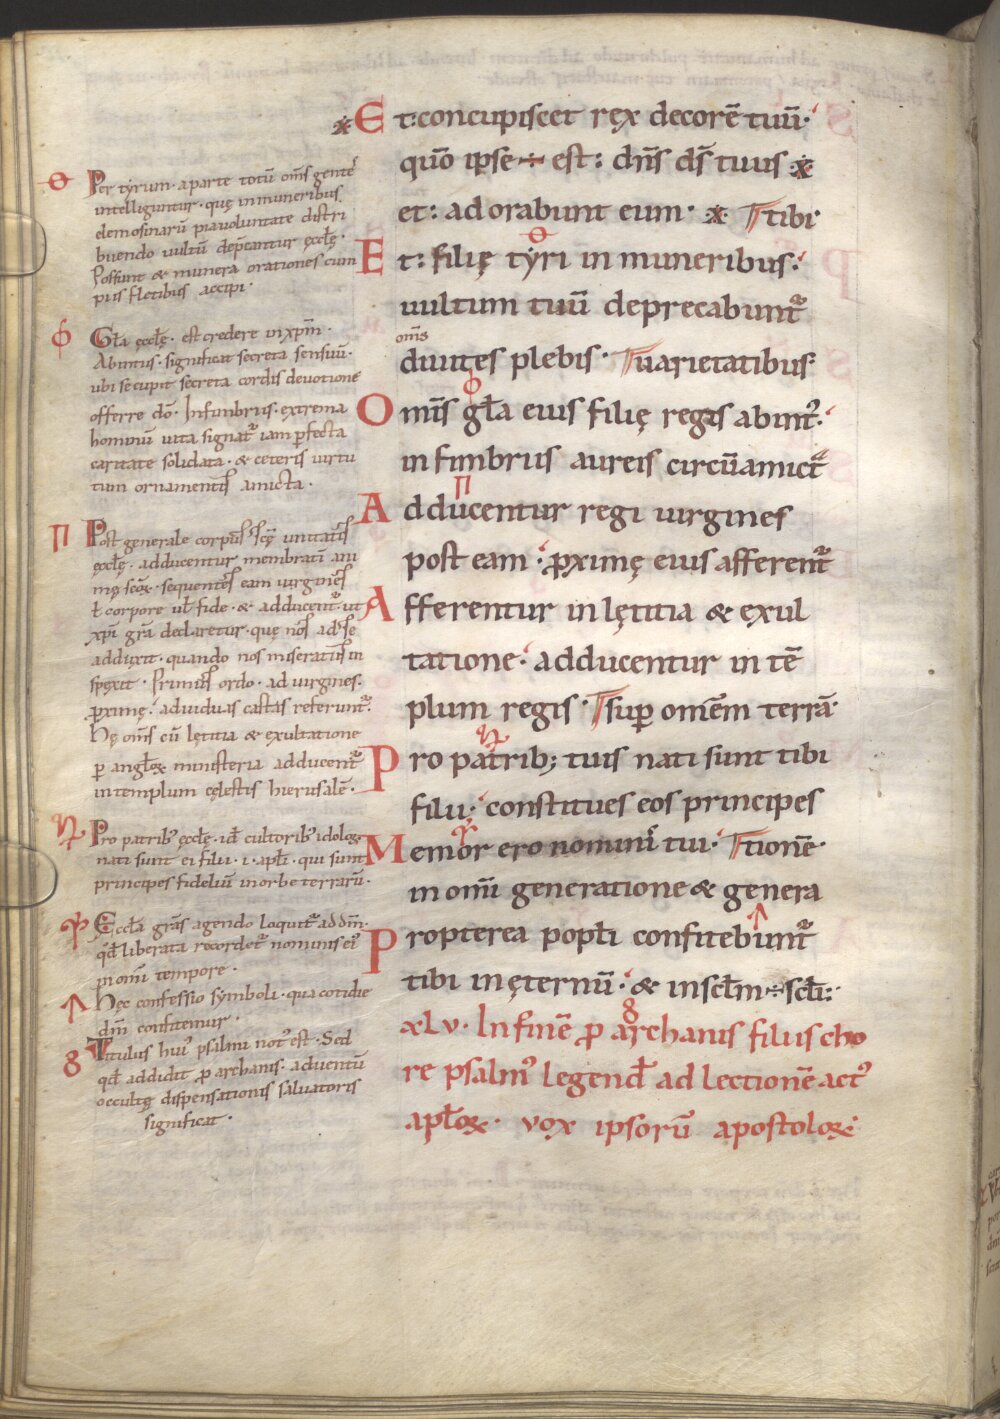 ※ Et: concupiscet rex decorē tuū·
quō ipse ÷ est: dn̄s ds̄ tuus ※
et: adorabunt eum· ※ tibi·
Et: filię tyri in muneribus:
uultum tuū deprecabunt᷑
om̄s
diuites plebis· uarietatibus:
Om̄is gl̄a eius filię regis abint᷒·
in fimbriis aureis circūamict᷒
Adducentur regi uirgines
post eam· ꝓximę eius afferent᷑
Afferentur in lętitia & exul
tatione· adducentur in tē
plum regis· sup̱ omēm terrā·
Pro patrib; tuis nati sunt tibi
filii; constitues eos principes
Memor ero nominis tui· tionē·
in om̄i generatione & genera
Propterea popl̄i confitebunt᷑
tibi in ęternū· & in scl̄m ÷ scl̄i:
xLv· In finē ꝓ archanis filiis cho
re psalm᷒ legend̄ ad lectionē act᷒
apl̄oꝝ· vox ipsorū apostoloꝝ·
Θ Per tyrum· a parte totū om̄s gentes
intelliguntur· quę in muneribus
elemosinarū pia uoluntate distri
buendo uultū dep̄cantur ęccl̄ę·
Possunt & munera orationes cum
piis fletibus accipi·
ϕ Gl̄a ęccl̄ę· est credere in xp̄m·
Abintus· significat secreta sensuū·
ubi se cupit secreta cordis deuotione
offerre dō· In fimbriis· extrema
hominū uita signat᷑ iam ꝑfecta
caritate solidata· & ceteris uirtu
tum ornamentis amicta·
Π Post generale corpus sc̄ę unitatis
ęccl̄ę· adducentur membratī ani
mę sc̄oꝝ· sequentes eam uirgines
ł corpore uł fide· & adducent᷑ ut
xp̄i gr̄a declaretur· quę nos ad se
adduxit· quando nos miseratus in
spexit· Primus ordo· ad uirgines·
ꝓximę· ad uiduas castas referunt᷑·
Hę om̄s cū lętitia & exultatione
ꝑ angl̄oꝝ ministeria adducent᷑
in templum cęlestis hierusalē·
Pro patrib᷒ ęccl̄ę· id ē cultorib᷒ idoloꝝ
nati sunt ei filii· i· apl̄i· qui sunt
principes fideliū in orbe terrarū·
Ęccl̄a gr̄as agendo loquit᷑ ad dn̄m·
qd̄ liberata recordet᷑ nominis ei᷒
in om̄i tempore·
Λ Hęc confessio symboli· qua cotidie
dn̄m confitemur·
8 Titulus hui᷒ psalmi not᷒ est· Sed
qd̄ addidit ꝓ archanis· aduentū
occultę dispensationis saluatoris
significat·